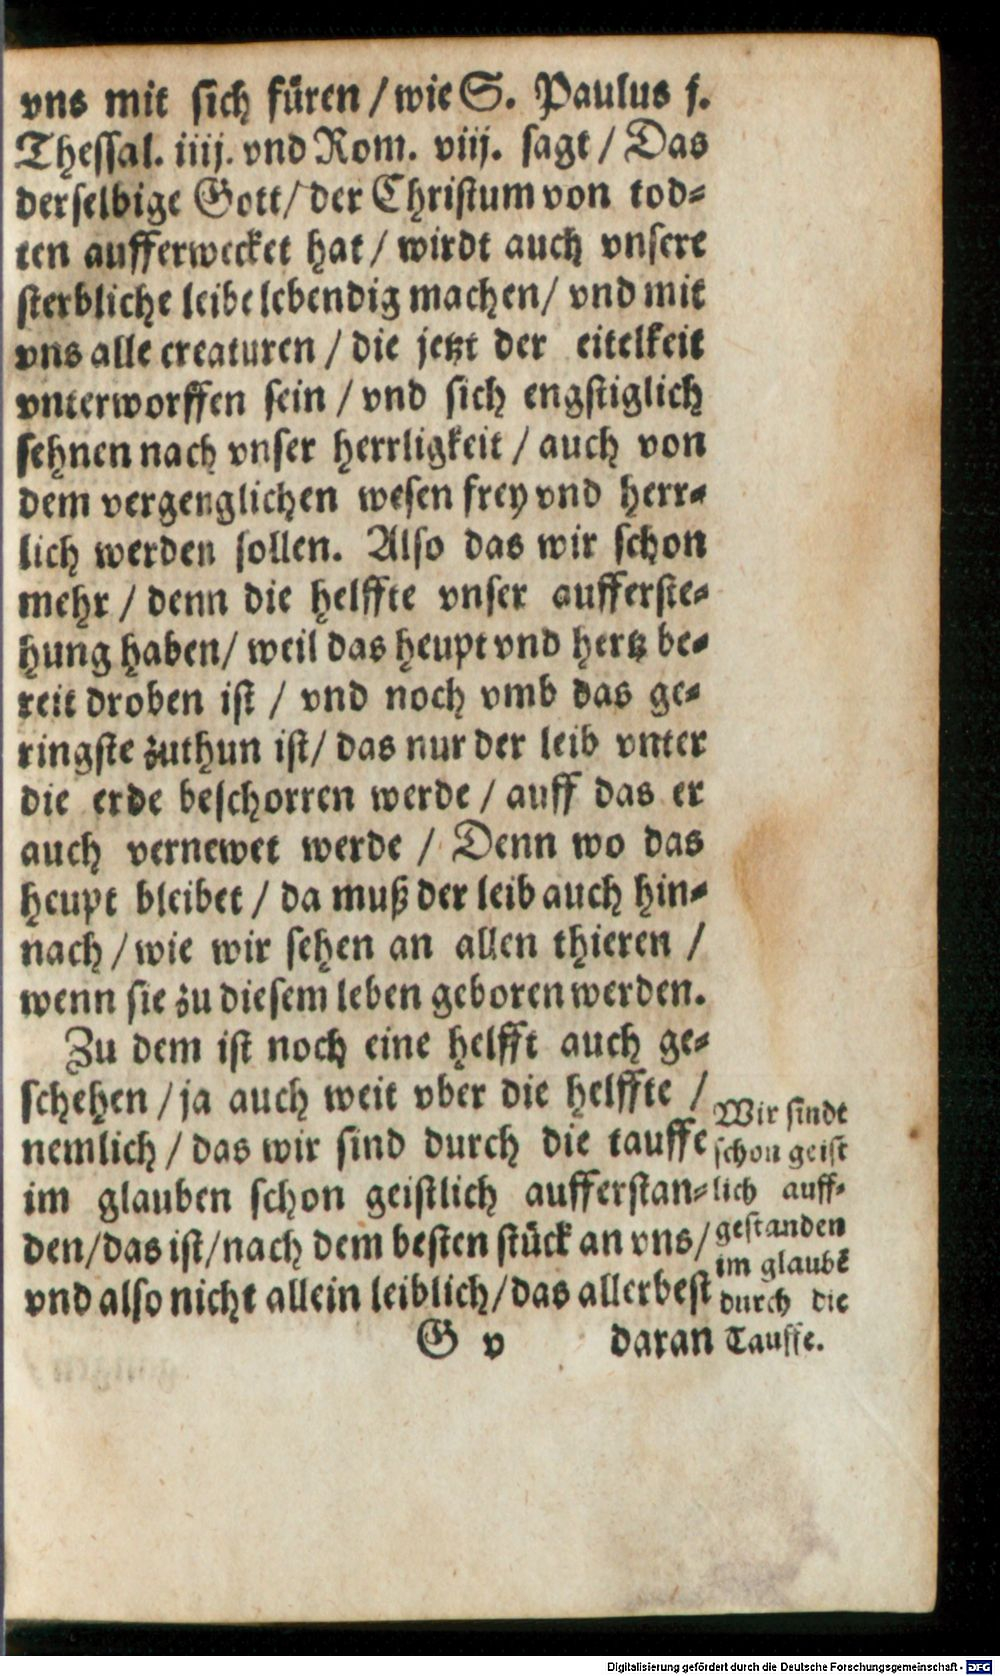 vns mit sich füren / wie S. Paulus j.
Thessal. iiij. vnd Rom. viij. sagt / Das
derselbige Gott / der Christum von tod-
ten aufferwecket hat / wirdt auch vnsere
sterbliche leibe lebendig machen / vnd mit
vns alle creaturen / die jetzt der eitelkeit
vnterworffen sein / vnd sich engstiglich
sehnen nach vnser herrligkeit / auch von
dem vergenglichen wesen frey vnd herr-
lich werden sollen. Also das wir schon
mehr / denn die helffte vnser aufferste-
hung haben / weil das heupt vnd hertz be-
reit droben ist / vnd noch vmb das ge-
ringste zuthun ist / das nur der leib vnter
die erde beschorren werde / auff das er
auch vernewet werde / Denn wo das
heupt bleibet / da muß der leib auch hin-
nach / wie wir sehen an allen thieren /
wenn sie zu diesem leben geboren werden.
Zu dem ist noch eine helfft auch ge-
schehen / ja auch weit vber die helffte /
nemlich / das wir sind durch die tauffe
im glauben schon geistlich aufferstan-
den / das ist / nach dem besten stück an vns /
vnd also nicht allein leiblich / das allerbest
G v daran
Wir sindt
schon geist
lich auff-
gestanden
im glaubē
durch die
Tauffe.
Digitalisierung gefördert durch die Deutsche Forschungsgemeinschaft - DFG